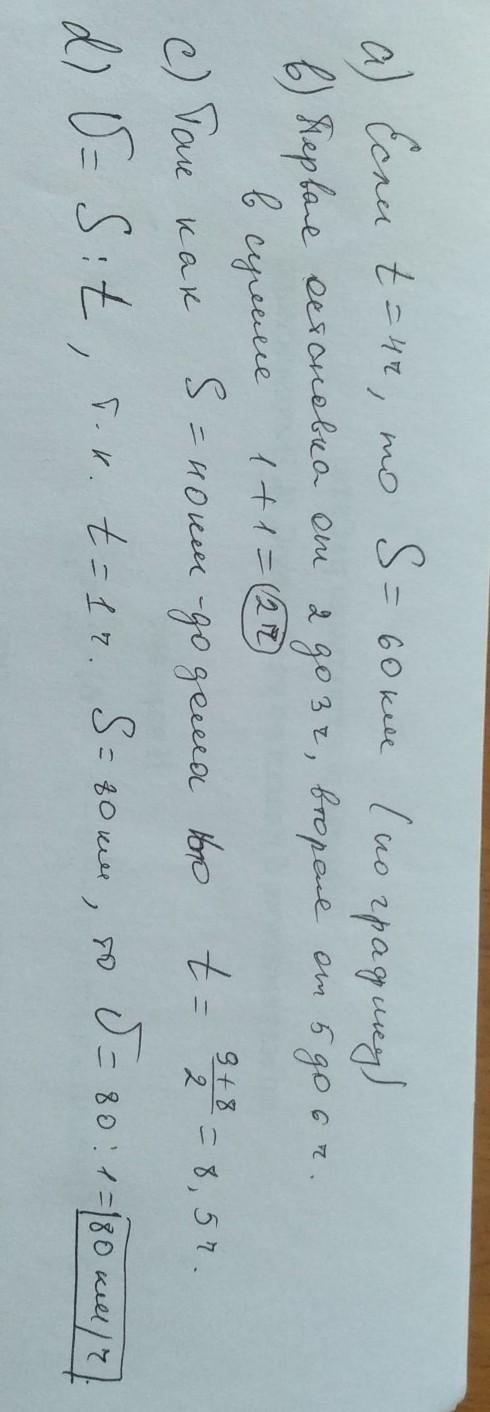 a) Если t = 4ч, то S = 60 км (по графику)
b) Первая остановка от 2 до 3 ч, вторая от 5 до 6 ч.
в сумме 1 + 1 = 2 ч
c) Так как S = 40 км - до дома то t = 9+8/2 = 8,5 ч.
d) V = S : t, т.к. t = 1 ч. S = 80 км, то V = 80 : 1 = 80 км/ч.